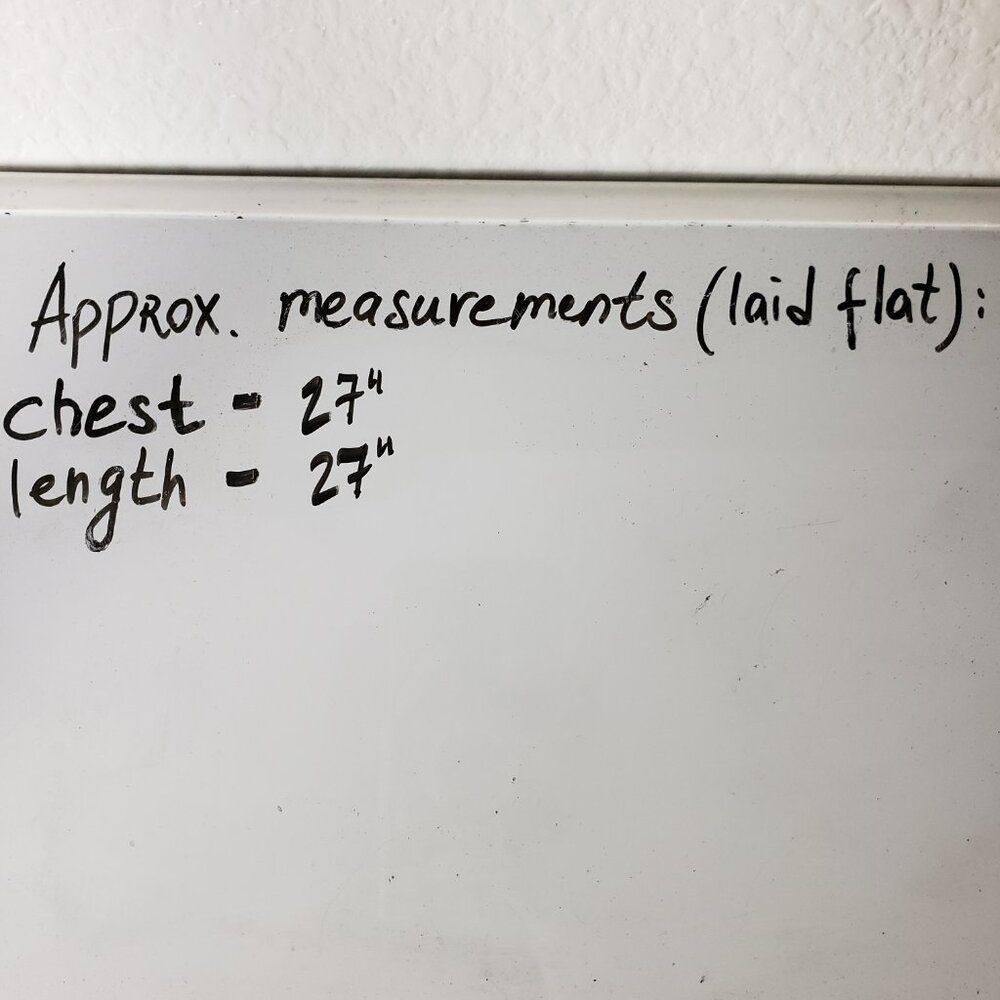 Approx. measurements (laid flat):
chest - 27"
length - 27"